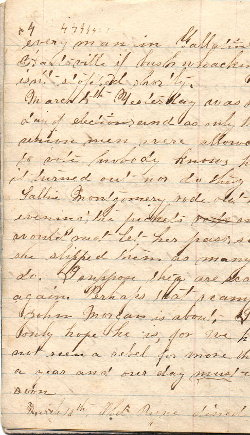 every man in Gallatin
if bushwhackin
isn't stopped shortly.
March 5th Yesterday was
day of election and as only t
union men were allowed
to vote nobody knows h
it turned out nor do they
Sallie Montgomery rode out
evening the pickets
would not let her pass, so
she slipped them as many
do. I suppose they are sca
again. Perhaps that scam
John Morgan is about, I
only hope he is, for I've h
not seen a rebel for more tha
a year and our day must
soon
March